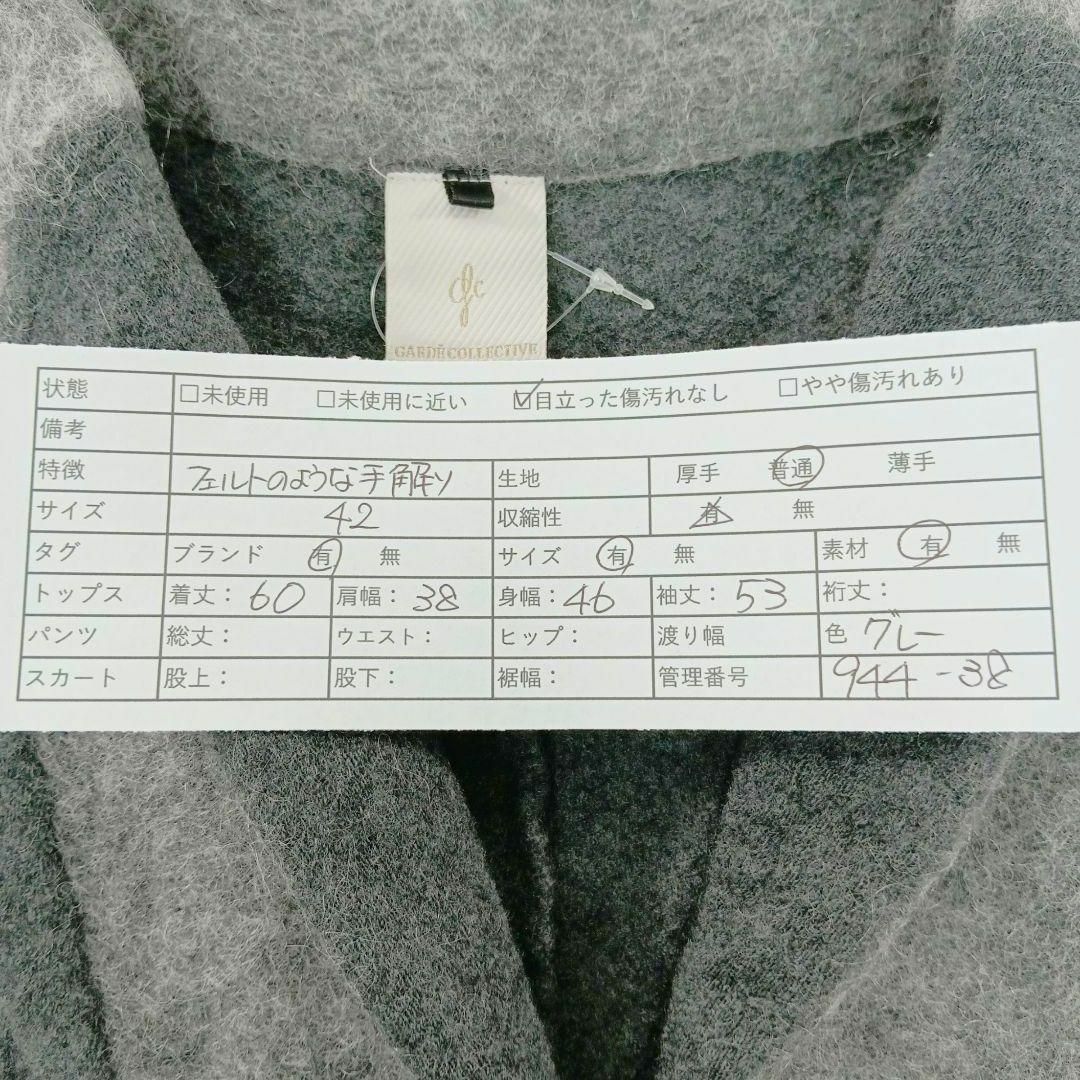 glc
GARDE COLLECTIVE
状態 □未使用 □未使用に近い ☑目立った傷汚れなし □やや傷汚れあり
備考
特徴 フェルトのような手解り 生地 厚手 普通 薄手
サイズ 42 収縮性 有 無
タグ ブランド 有 無 サイズ 有 無 素材 有 無
トップス 着丈：60 肩幅：38 身幅：46 袖丈：53 裄丈：
パンツ 総丈： ウエスト： ヒップ： 渡り幅 色 グレー
スカート 股上： 股下： 裾幅： 管理番号 944-38